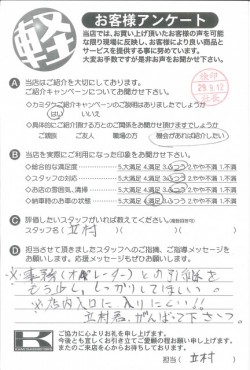 軽
お客様アンケート
当店では、お買い上げ頂いたお客様の声を可能
な限り現場に反映し、お客様により良い商品と
サービスを提供する事に努めています。
大変お手数ですが是非お声をお聞かせ下さい。
A 当店はご紹介を大切にしております。
ご紹介キャンペーンについてお聞かせ下さい。
◇カミタケご紹介キャンペーンのご説明はありましたでしょうか
はい いいえ
◇具体的にご紹介頂ける方とのご関係をお聞かせ頂けますでしょうか
ご親族 ご友人 職場の方 機会があれば紹介したい
B 当店を実際にご利用になった印象をお聞かせ下さい。
◇総合的な満足度 5.大満足 4.満足 3.ふつう 2.やや不満 1.不満
◇スタッフの対応 5.大満足 4.満足 3.ふつう 2.やや不満 1.不満
◇お店の雰囲気、清掃 5.大満足 4.満足 3.ふつう 2.やや不満 1.不満
◇納車時のお車の状態 5.大満足 4.満足 3.ふつう 2.やや不満 1.不満
C 評価したいスタッフがいれば教えてください。(複数回答可)
スタッフ名 立村
D 担当させて頂きましたスタッフへのご指摘、ご指導メッセージを
お願いします。応援メッセージもぜひお願いします。
※事務(オペレーター)との引継を
もう少し、しっかりしてほしい。
※店内入口に入りにくい!!
立村君、がんばって下さいっ
K
ご協力に心よりお礼を申し上げます。
今後とも宜しくお引き立てご愛顧の程お願い申し上げます。
またのご来店を心からお待ちしております。
担当( 立村 )